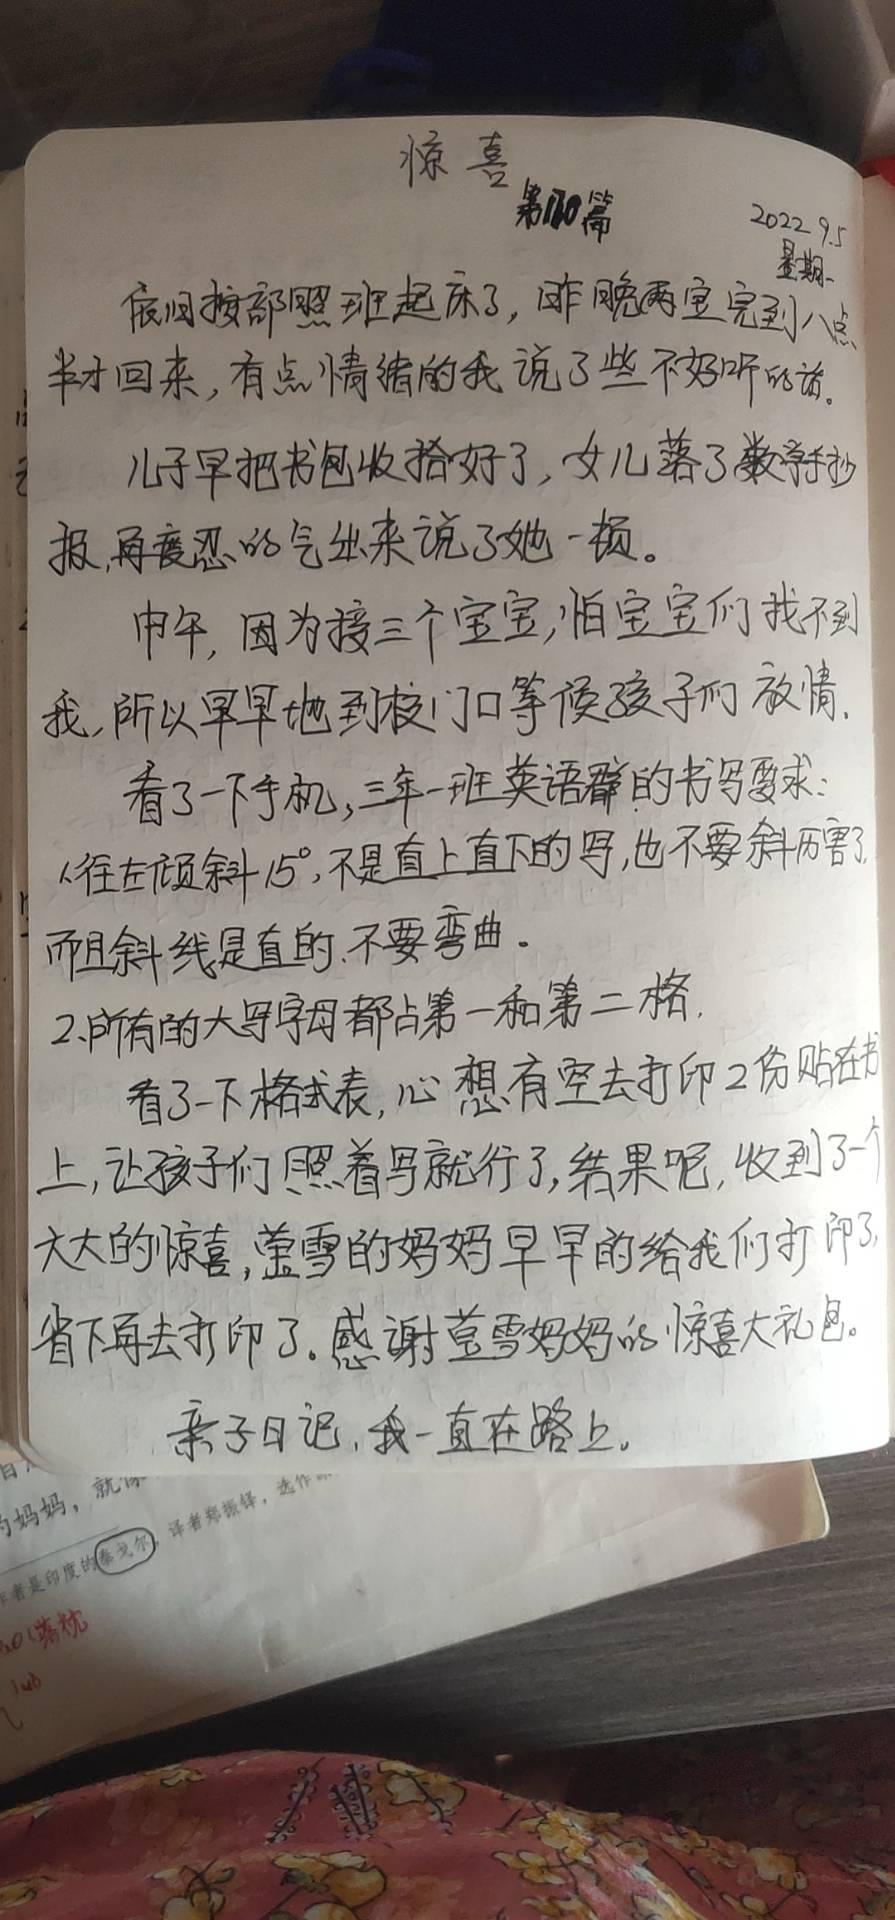 惊喜
第110篇
2022 9.5
星期一
依旧按部照班起床了，昨晚两宝完到八点
半才回来，有点情绪的我说了些不好听的话。
儿子早把书包收拾好了，女儿落了数学手抄
报，再度忍的气出来说了她一顿。
中午，因为接三个宝宝，怕宝宝们找不到
我，所以早早地到校门口等候孩子们放情.
看了一下手机，三年一班英语群的书写要求：
1、往左倾斜15°，不是直上直下的写，也不要斜厉害了，
而且斜线是直的、不要弯曲。
2、所有的大写字母都占第一和第二格.
看了一下格式表，心想有空去打印2份贴在书
上，让孩子们照着写就行了，结果呢，收到了一个
大大的惊喜，莹雪的妈妈早早的给我们打印了，
省下再去打印了。感谢莹雪妈妈的惊喜大礼包。
亲子日记，我一直在路上。
的妈妈，就像
作者是印度的泰戈尔，译者郑振铎，选作
落枕